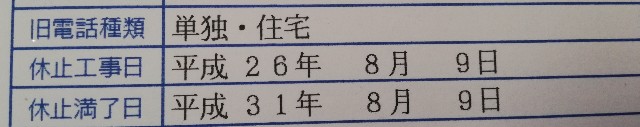 旧電話種類 単独・住宅
休止工事日 平成 26年 8月 9日
休止満了日 平成 31年 8月 9日